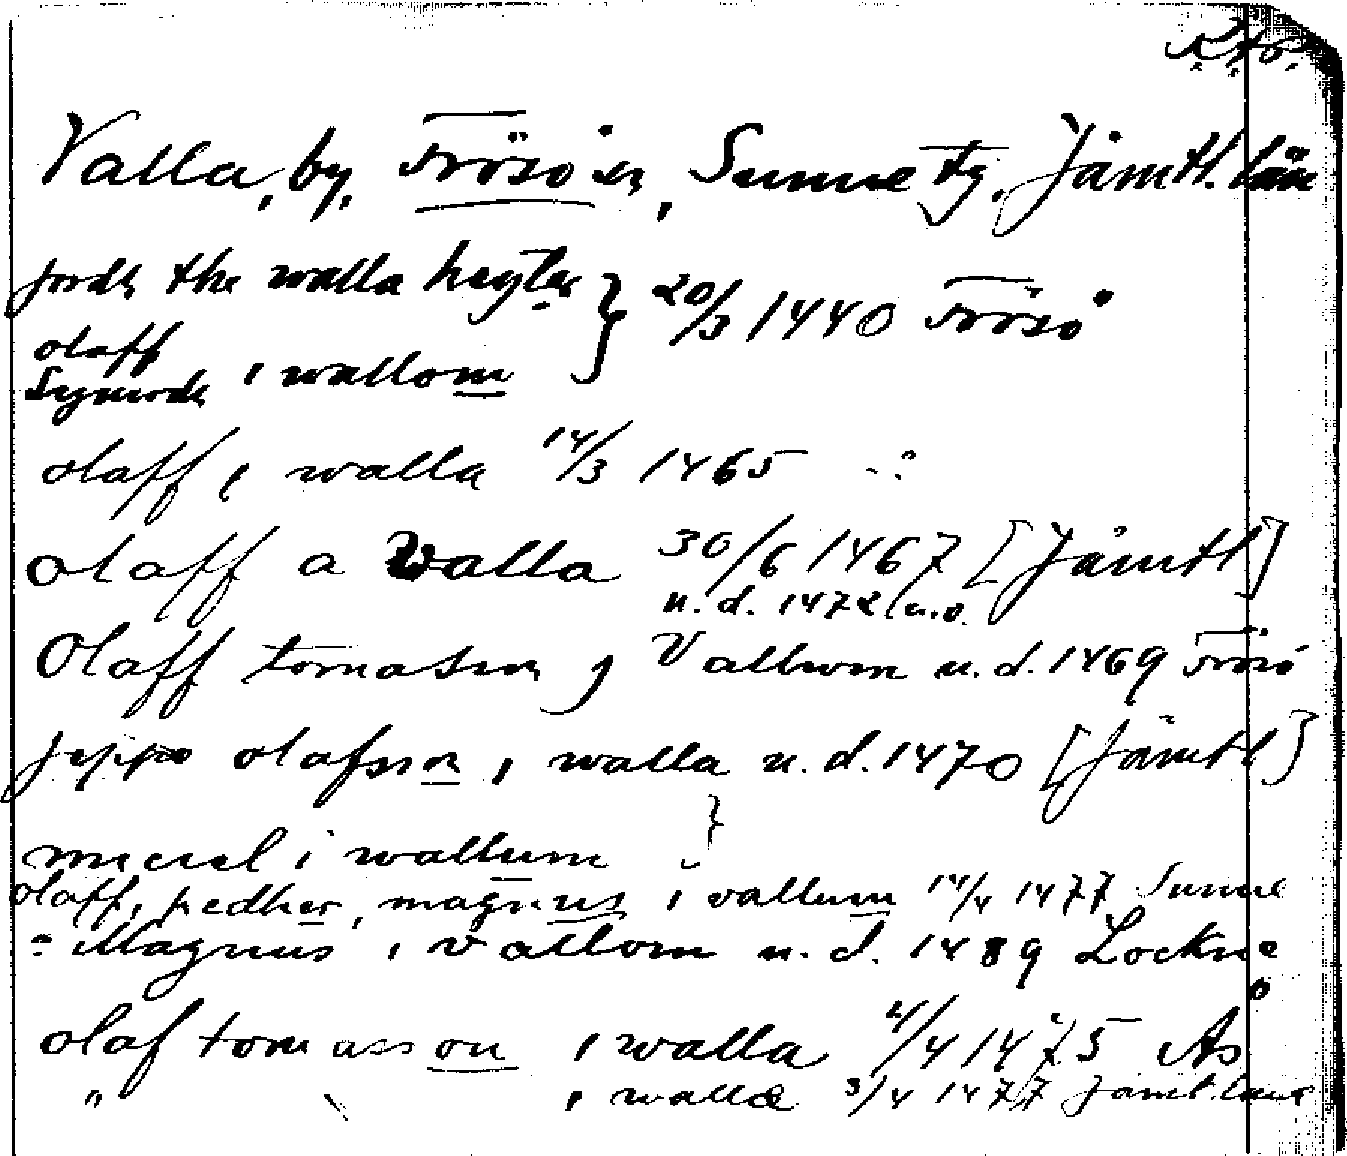 Valla, by, Frösö sn, Sunne tg, Jämtl. län
jordh the walla heyter } 20/3 1440 Frösö
olaff
Sywordh i wallom
olaff i walla 14/3 1465 -:-
olaff a walla 30/6 1467 [Jämtl]
u.d. 1472 u.o.
Olaff tomasson j Vallwm u.d. 1469 Frösö
jeppe olafsson i walla u.d. 1470 [Jämtl]
i wallum }
olaff, pedher, magnus i vallum 14/4 1477 Sunne
Magnus i vallom u.d. 1489 Lockne
olaf tomasson i walla 4/4 1475 Ås
" i wallæ 3/4 1477 Jämtland